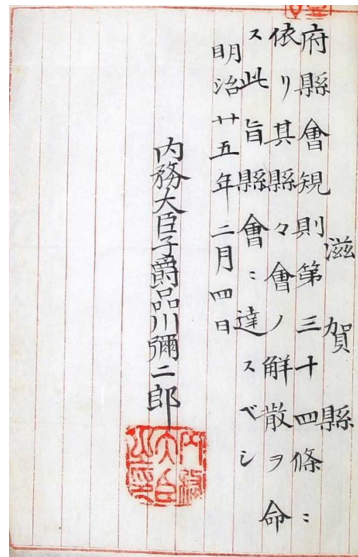 滋賀縣
府縣會規則第三十四條ニ
依リ其縣々會ノ解散ヲ命
ス此旨縣會ニ達スベシ
明治廿五年二月四日
内務大臣子爵品川彌二郎
内務大臣之印